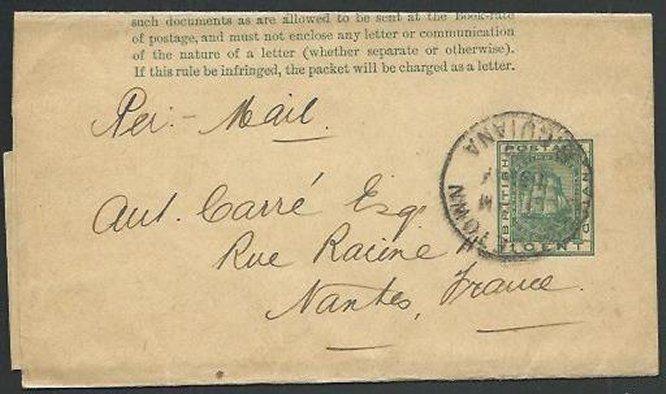 such documents as are allowed to be sent at the Book-rate
of postage, and must not enclose any letter or communication
of the nature of a letter (whether separate or otherwise).
If this rule be infringed, the packet will be charged as a letter.
Per:- Mail.
Aut. Carré Esq
Rue Racine
Nantes, France.
GUIANA
TOWN
POSTA
BRITISH
GUIANA
1 CENT